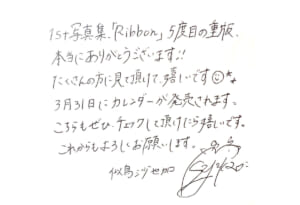 1st写真集、「Ribbon」5度目の重版、
本当にありがとうございます!!
たくさんの方に見て頂けて嬉しいです
3月31日にカレンダーが発売されます。
こちらもぜひ、チェックして頂けたら嬉しいです。
これからもよろしくお願いします。
似鳥沙也加